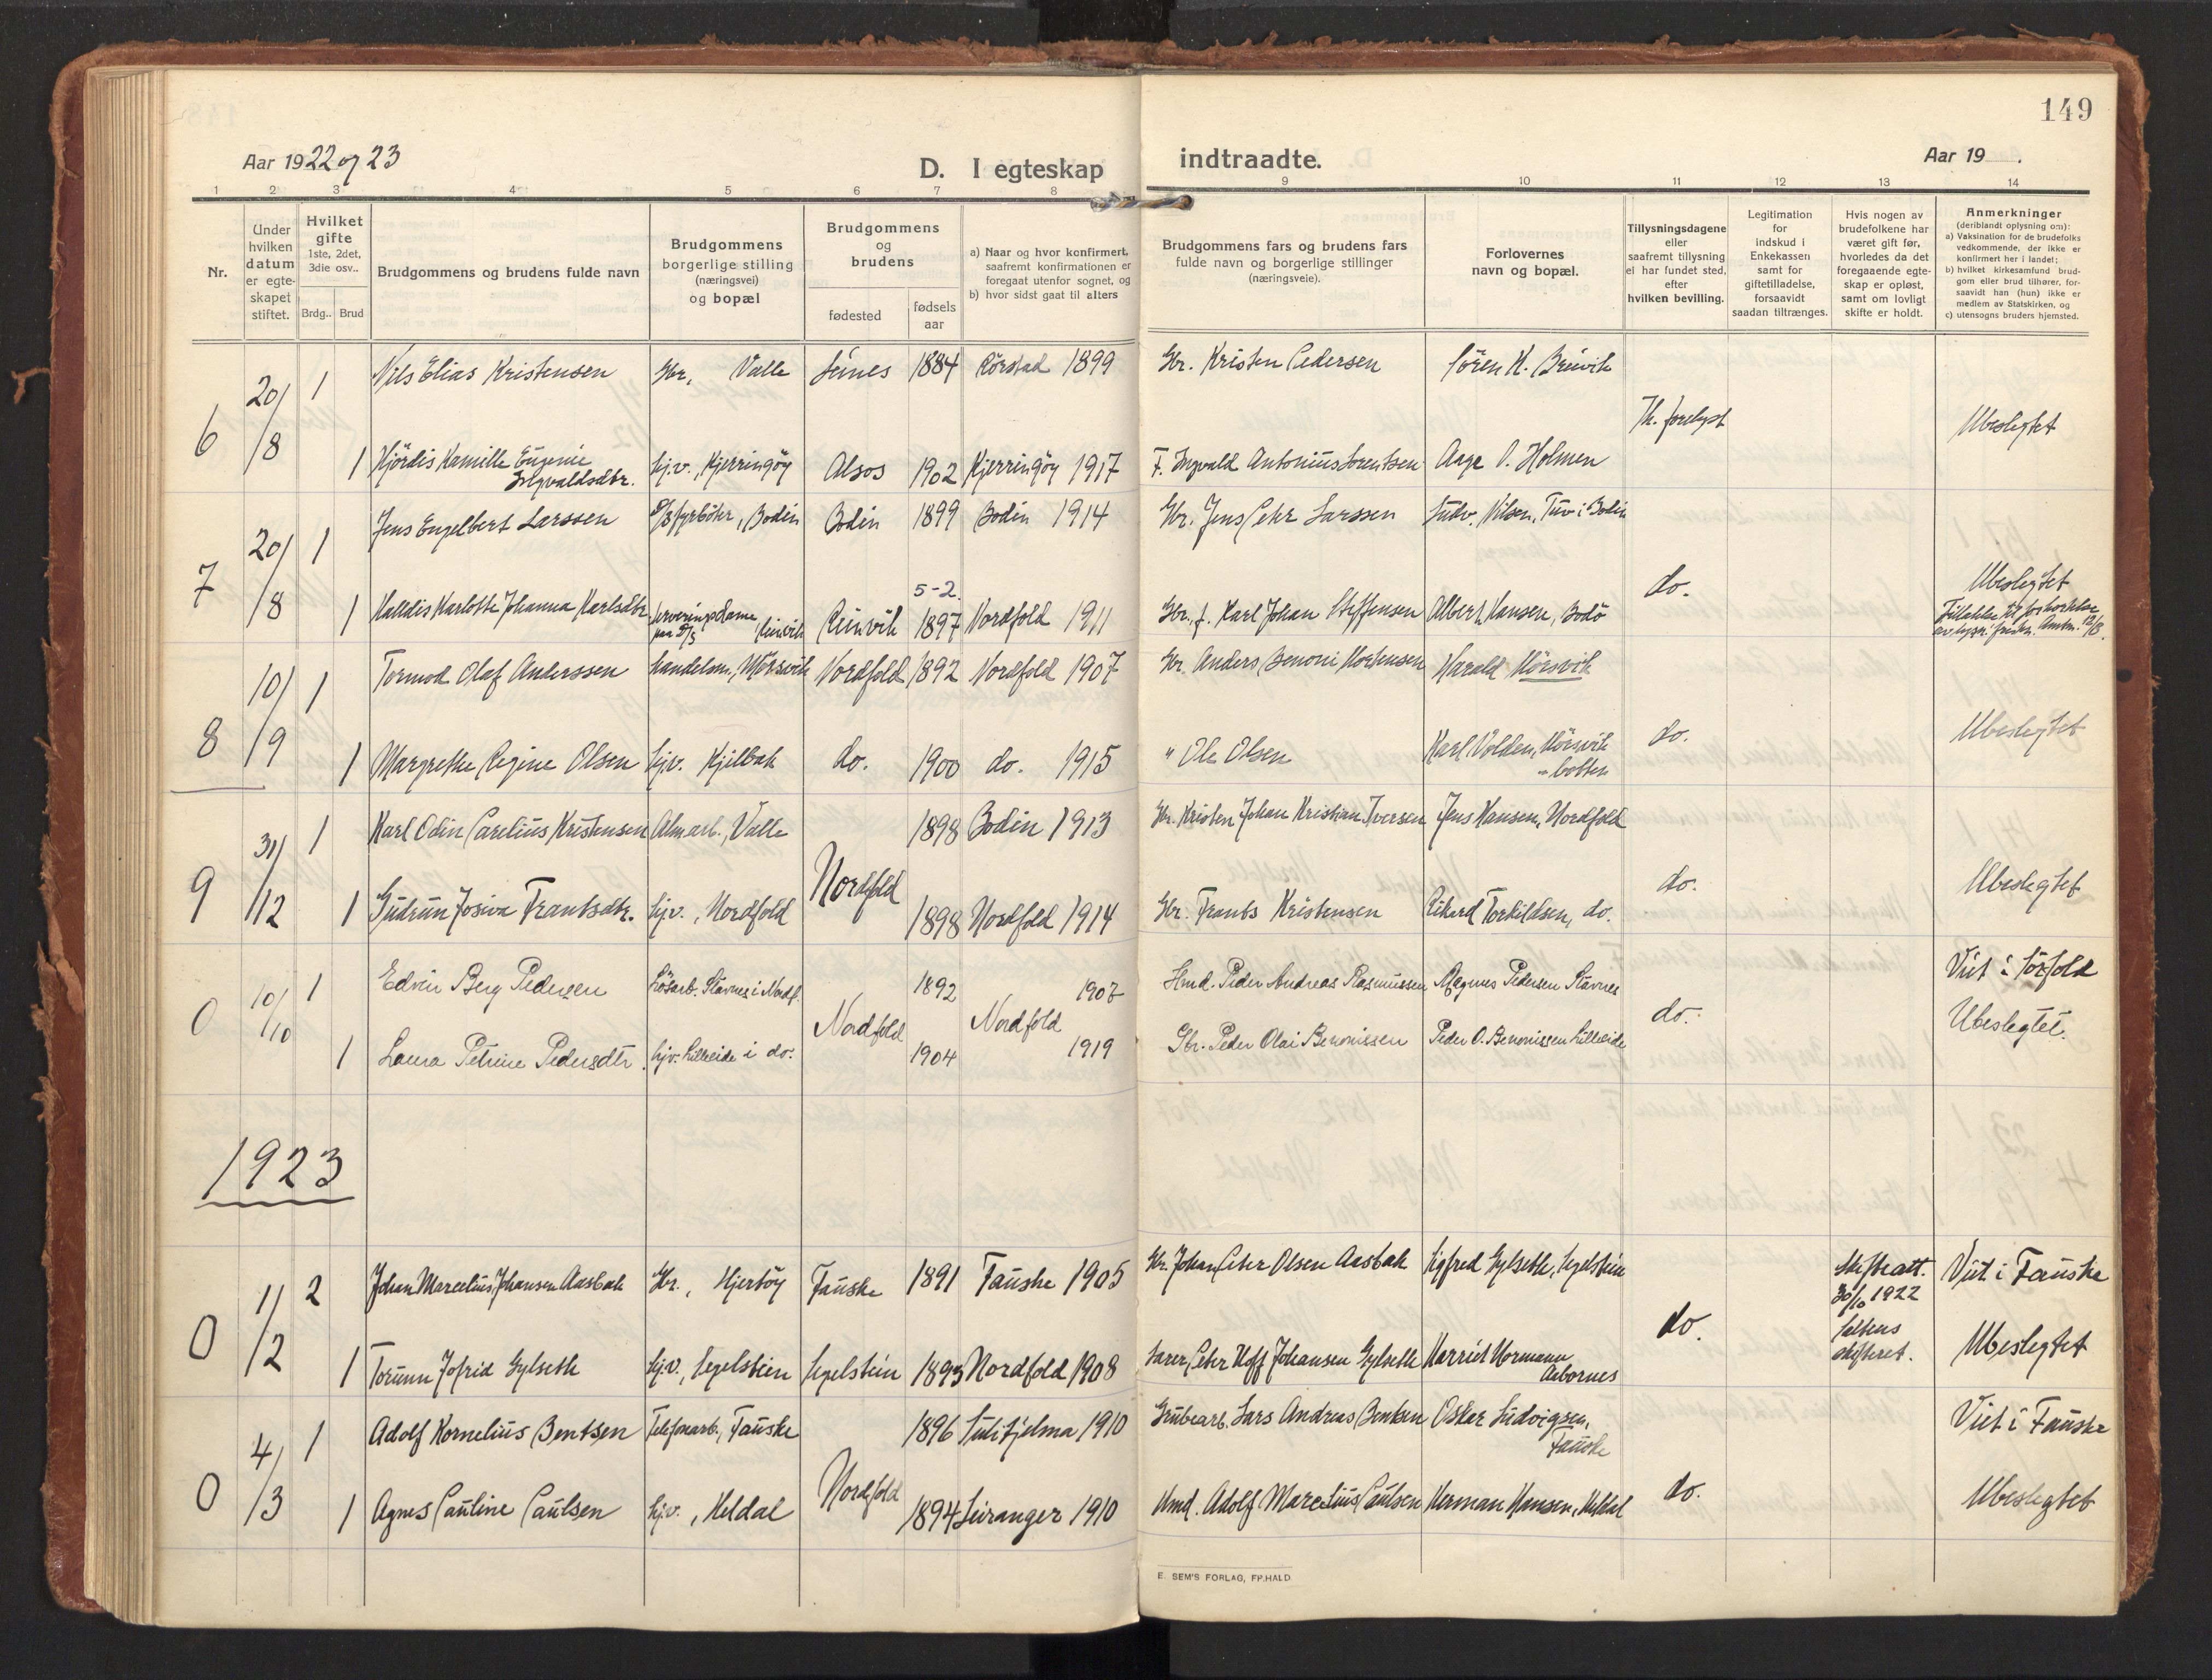 149
Aar 1922 og 23
D. I egteskap indtraadte.
Aar 19 .
1 2 3 4 5 6 7 8 9 10 11 12 13 14
Nr.
Under hvilken datum er egte-skapet stiftet.
Hvilket gifte
1ste, 2det, 3die osv..
Brdg.. Brud
Brudgommens og brudens fulde navn
Brudgommens borgerlige stilling (næringsvei) og bopæl
Brudgommens og brudens
fødested
fødsels aar
a) Naar og hvor konfirmert, saafremt konfirmationen er foregaat utenfor sognet, og
b) hvor sidst gaat til alters
Brudgommens fars og brudens fars fulde navn og borgerlige stillinger (næringsveie).
Forlovernes navn og bopæl.
Tillysningsdagene eller saafremt tillysning ei har fundet sted, efter hvilken bevilling.
Legitimation for indskud i Enkekassen samt for giftetilladelse, forsaavidt saadan tiltrænges.
Hvis nogen av brudefolkene har været gift før, hvorledes da det foregaaende egte-skap er opløst, samt om lovligt skifte er holdt.
Anmerkninger
(deriblandt oplysning om):
a) Vaksination for de brudefolks vedkommende, der ikke er konfirmert her i landet;
b) hvilket kirkesamfund brud-gom eller brud tilhører, for-saavidt han (hun) ikke er medlem av Statskirken, og
c) utensogns bruders hjemsted.
6 20/8 1 Nils Elias Kristensen Gbr., Valle Seines 1884 Rørstad 1899 Gbr. Kristen Pedersen Sören K. Breivik
Th. forelyst Ubeslegtet
1 Hjördis Kamilla Eugenie Ingvaldsdtr. hj.v., Kjerringöy Alsos 1902 Kjerringöy 1917 F. Ingvald Antonius Lorentsen Aage O. Holmen
7 20/8 1 Jens Engelbert Larssen D/S fyrböter, Bodin Bodin 1899 Bodin 1914 Gbr. Jens Peter Larssen Ludv. Nilsen, Tuv i Bodin
do. Ubeslegtet
5-2.
1 Halldis Karlotte Johanna Karlsdtr. serveringsdame paa D/S, Leinvik Leinvik 1897 Nordfold 1911 Gbr., f. Karl Johan Steffensen Albert Hansen, Bodö
8 10/9 1 Tormod Olaf Anderssen handelsm., Mörsvik Nordfold 1892 Nordfold 1907 Gbr. Anders Benoni Mortensen Harald Mörsvik
do. Ubeslegtet
1 Margrethe Regine Olsen hj.v. Kjelbak do. 1900 do. 1915 " Ole Olsen Karl Volden, Mörsvik-botten
9 31/12 1 Karl Odin Parelius Kristensen Alm arb., Valle 1898 Bodin 1913 Gbr. Kristen Johan Kristian Iversen Jens Hansen, Nordfold
Nordfold do. Ubeslegtet
1 Gudrun Josiva Frantsdtr. hj.v., Nordfold 1898 Nordfold 1914 Gbr. Frants Kristensen Rikard Torkildsen, do.
0 10/10 1 Edvin Berg Pedersen Lösarb. Stavnes i Nordf. 1892 1907 Hmd. Peder Andreas Rasmussen Magnus Pedersen Stavnes Viet i Sörfold
Nordfold Nordfold do. Ubeslegtet.
1 Laura Petrine Pedersdtr. hjv. Lilleeide i do. 1904 1919 Gbr. Peder Olai Benonissen Peder O. Benonissen Lilleeide
1923
0 11/2 2 Johan Marcelius Johansen Aasbak Gbr., Hjertöy Fauske 1891 Fauske 1905 Gbr. Johan Peter Olsen Aasbak Sigfred Gylseth, Segelstein Skifteatt. 30/10 1922 Viet i Fauske
do. Saltens skifteret. Ubeslegtet
1 Torunn Jofrid Gylseth hj.v., Segelstein Segelstein 1893 Nordfold 1908 Peter Hoff Johansen Gylseth Harriet Normann
0 4/3 1 Adolf Kornelius Bentsen Telefonarb., Fauske 1896 Sulitjelma 1910 Grubearb. Lars Andreas Bentsen Oskar Ludvigsen, Fauske Viet i Fauske
Nordfold do. Ubeslegtet
1 Agnes Pauline Paulsen hj.v., Heldal 1894 Leiranger 1910 Hmd. Adolf Marcelius Paulsen Herman Hansen, Heldal
E. SEM'S FORLAG, FR.HALD